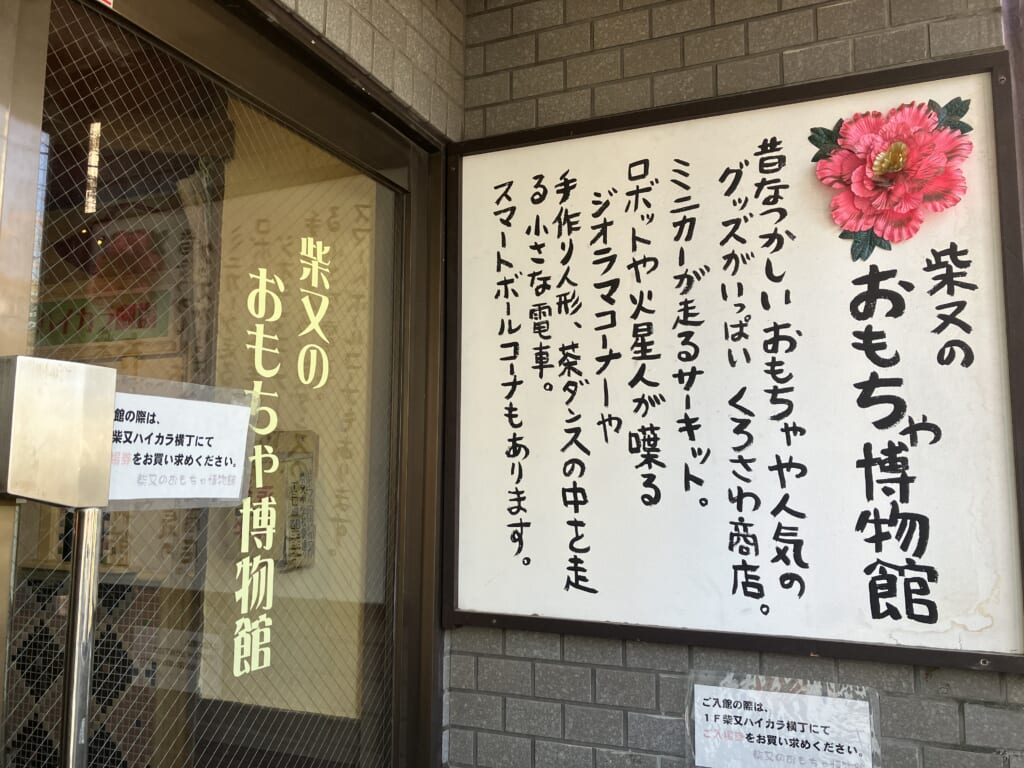 柴又の
おもちゃ博物館
昔なつかしいおもちゃや人気の
グッズがいっぱい くろさわ商店。
ミニカーが走るサーキット。
ロボットや火星人が喋る
ジオラマコーナーや
手作り人形、茶ダンスの中を走
る小さな電車。
スマートボールコーナもあります。
柴又の
おもちゃ博物館
館の際は、
柴又ハイカラ横丁にて
場券をお買い求めください。
柴又のおもちゃ博物館
ご入館の際は、
1F柴又ハイカラ横丁にて
ご入場券をお買い求めください。
柴又のおもちゃ博物館